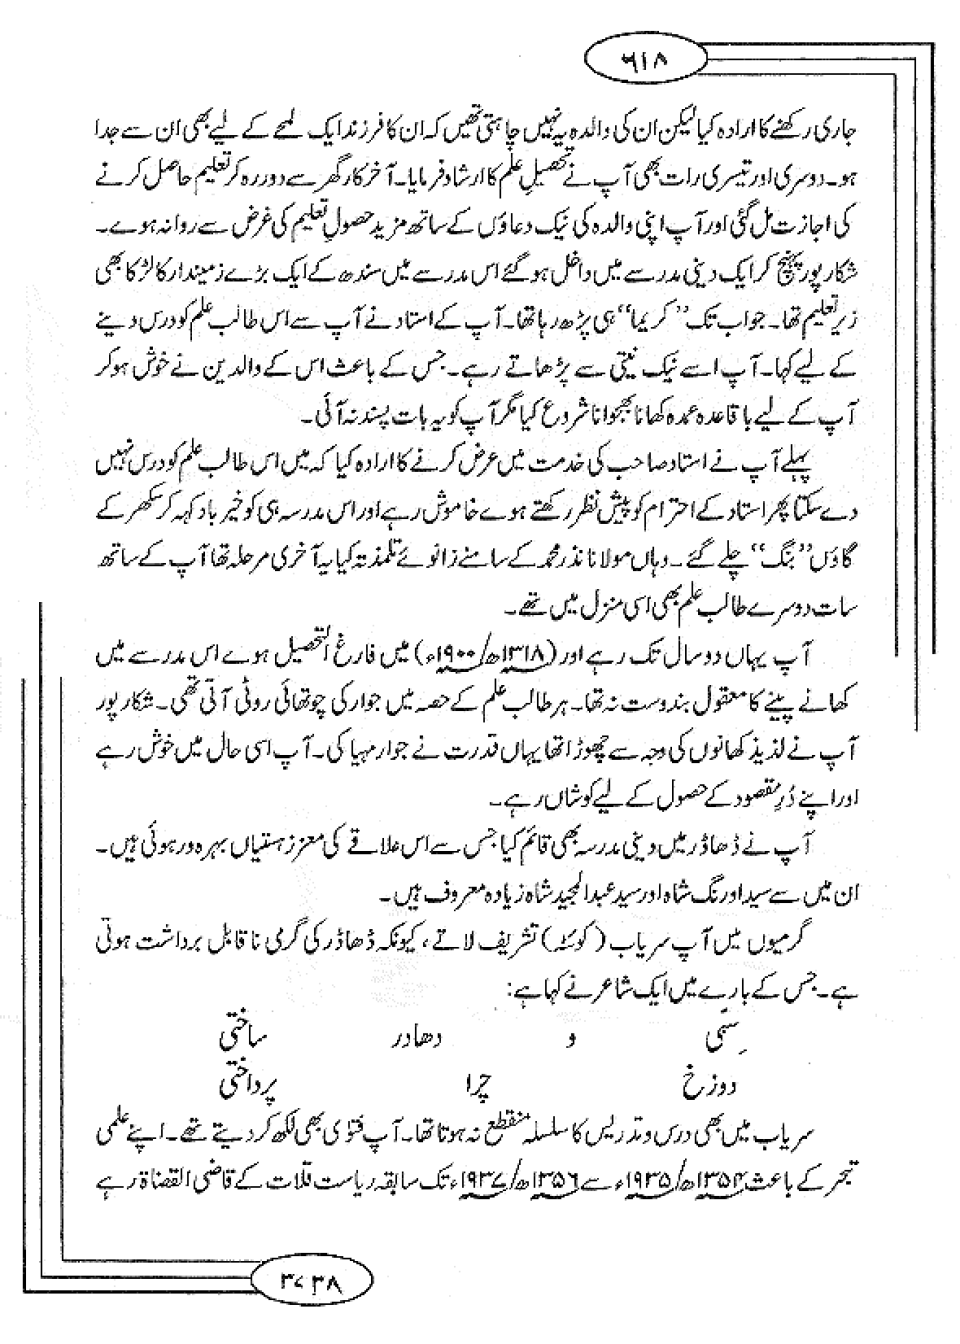 ۶۱۸
جاری رکھنے کا ارادہ کیا لیکن ان کی والدہ یہ نہیں چاہتی تھیں کہ ان کا فرزند ایک لمحے کے لیے بھی ان سے جدا
ہو۔ دوسری اور تیسری رات بھی آپ نے تحصیلِ علم کا ارشاد فرمایا۔ آخر کار گھر سے دور رہ کر تعلیم حاصل کرنے
کی اجازت مل گئی اور آپ اپنی والدہ کی نیک دعاؤں کے ساتھ مزید حصولِ تعلیم کی غرض سے روانہ ہوے۔
شکار پور پہنچ کر ایک دینی مدرسے میں داخل ہو گئے اس مدرسے میں سندھ کے ایک بڑے زمیندار کا لڑکا بھی
زیر تعلیم تھا۔ جو اب تک ”کریما“ ہی پڑھ رہا تھا۔ آپ کے استاد نے آپ سے اس طالب علم کو درس دینے
کے لیے کہا۔ آپ اسے نیک نیتی سے پڑھاتے رہے۔ جس کے باعث اس کے والدین نے خوش ہو کر
آپ کے لیے باقاعدہ عمدہ کھانا بھجوانا شروع کیا مگر آپ کو یہ بات پسند نہ آئی۔
پہلے آپ نے استاد صاحب کی خدمت میں عرض کرنے کا ارادہ کیا کہ میں اس طالب علم کو درس نہیں
دے سکتا پھر استاد کے احترام کو پیش نظر رکھتے ہوے خاموش رہے اور اس مدرسہ ہی کو خیر باد کہہ کر سکھر کے
گاؤں ”بنگ“ چلے گئے۔ وہاں مولانا نذر محمد کے سامنے زانوئے تلمذ تہ کیا یہ آخری مرحلہ تھا آپ کے ساتھ
سات دوسرے طالب علم بھی اسی منزل میں تھے۔
آپ یہاں دو سال تک رہے اور (۱۳۱۸ھ/۱۹۰۰ء) میں فارغ التحصیل ہوے اس مدرسے میں
کھانے پینے کا معقول بندوست نہ تھا۔ ہر طالب علم کے حصہ میں جوار کی چوتھائی روٹی آتی تھی۔ شکار پور
آپ نے لذیذ کھانوں کی وجہ سے چھوڑا تھا یہاں قدرت نے جوار مہیا کی۔ آپ اسی حال میں خوش رہے
اور اپنے دُرِ مقصود کے حصول کے لیے کوشاں رہے۔
آپ نے ڈھاڈر میں دینی مدرسہ بھی قائم کیا جس سے اس علاقے کی معزز ہستیاں بہرہ ور ہوئی ہیں۔
ان میں سے سید اورنگ شاہ اور سید عبدالمجید شاہ زیادہ معروف ہیں۔
گرمیوں میں آپ سریاب (کوئٹہ) تشریف لاتے، کیونکہ ڈھاڈر کی گرمی ناقابل برداشت ہوتی
ہے۔ جس کے بارے میں ایک شاعر نے کہا ہے:
سبّی و دھادر ساختی
دوزخ چرا پرداختی
سریاب میں بھی درس و تدریس کا سلسلہ منقطع نہ ہوتا تھا۔ آپ فتویٰ بھی لکھ کر دیتے تھے۔ اپنے علمی
تبحر کے باعث ۱۳۵۴ھ/۱۹۳۵ء سے ۱۳۵۶ھ/۱۹۳۷ء تک سابقہ ریاست قلات کے قاضی القضاۃ رہے
۳۷۳۸